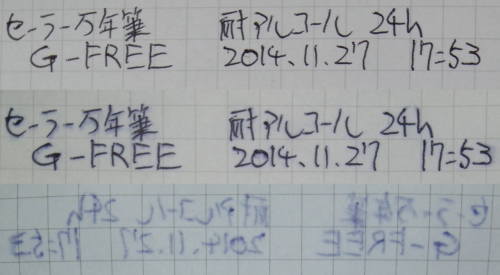 セーラー万年筆 耐アルコール 24h
G-FREE 2014.11.27 17:53
セーラー万年筆 耐アルコール 24h
G-FREE 2014.11.27 17:53
セーラー万年筆 耐アルコール 24h
G-FREE 2014.11.27 17:53